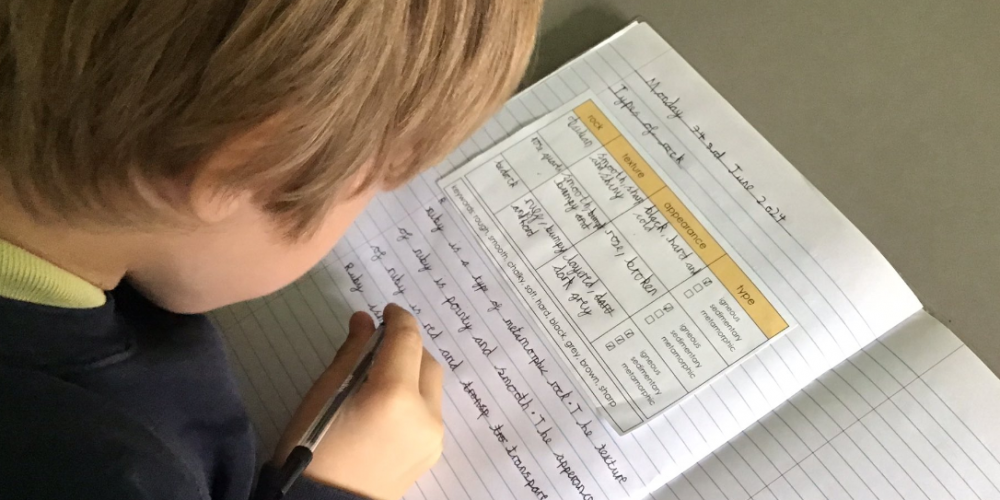 Monday 3rd June 2024
Types of rock
rock texture appearance type
smooth, sharp and shiny
black, hard and cold
igneous
sedimentary
metamorphic
smooth bumpy and
rose, broken
igneous
sedimentary
metamorphic
bedrock
ruff, bumpy and hard
layered, dark grey
igneous
sedimentary
metamorphic
keywords: rough, smooth, chalky, soft, hard, black, grey, brown, sharp
Ruby is a type of metamorphic rock. The texture
of ruby is pointy and smooth. The
of ruby is red and
Ruby is